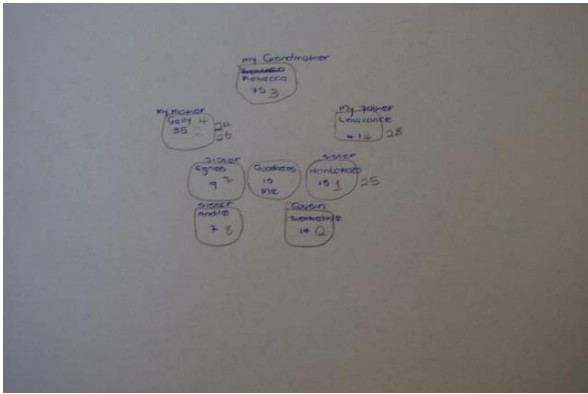 my Grandmother
Rebecca
75 3
my mother
Gelly 4
35
24
26
my Father
Lawrance
414 28
sister
Agnes
9 7
Goodness
is
me
sister
15 1 25
sister
Andile
7 8
Cousin
14 2